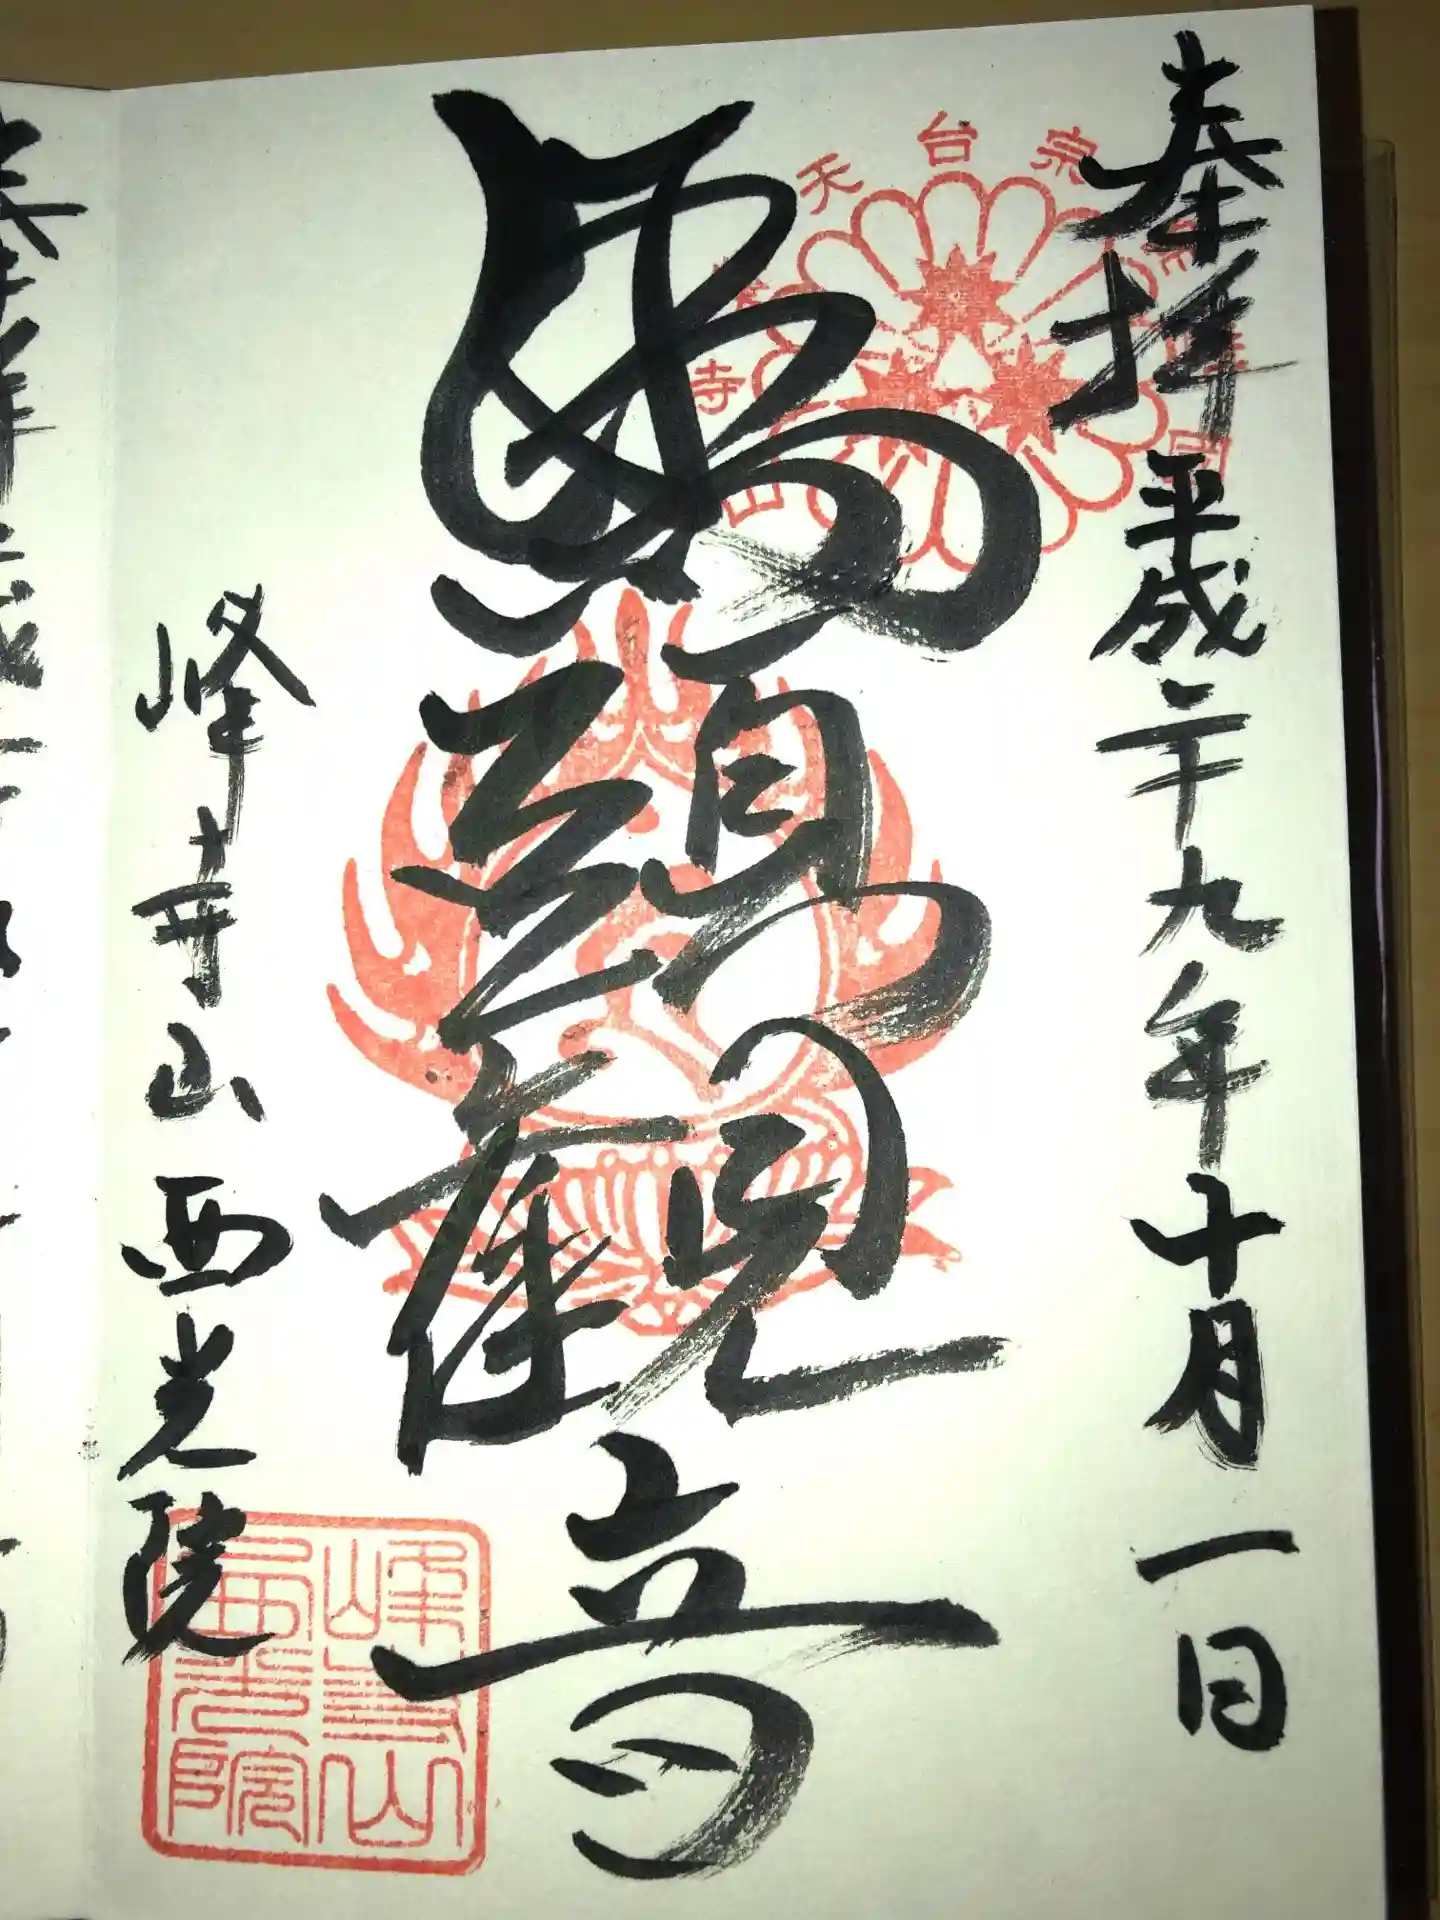 奉拝 平成二十九年十月一日
馬頭觀音
峰寺山西光院
天台宗
寺
峰寺山
西光院